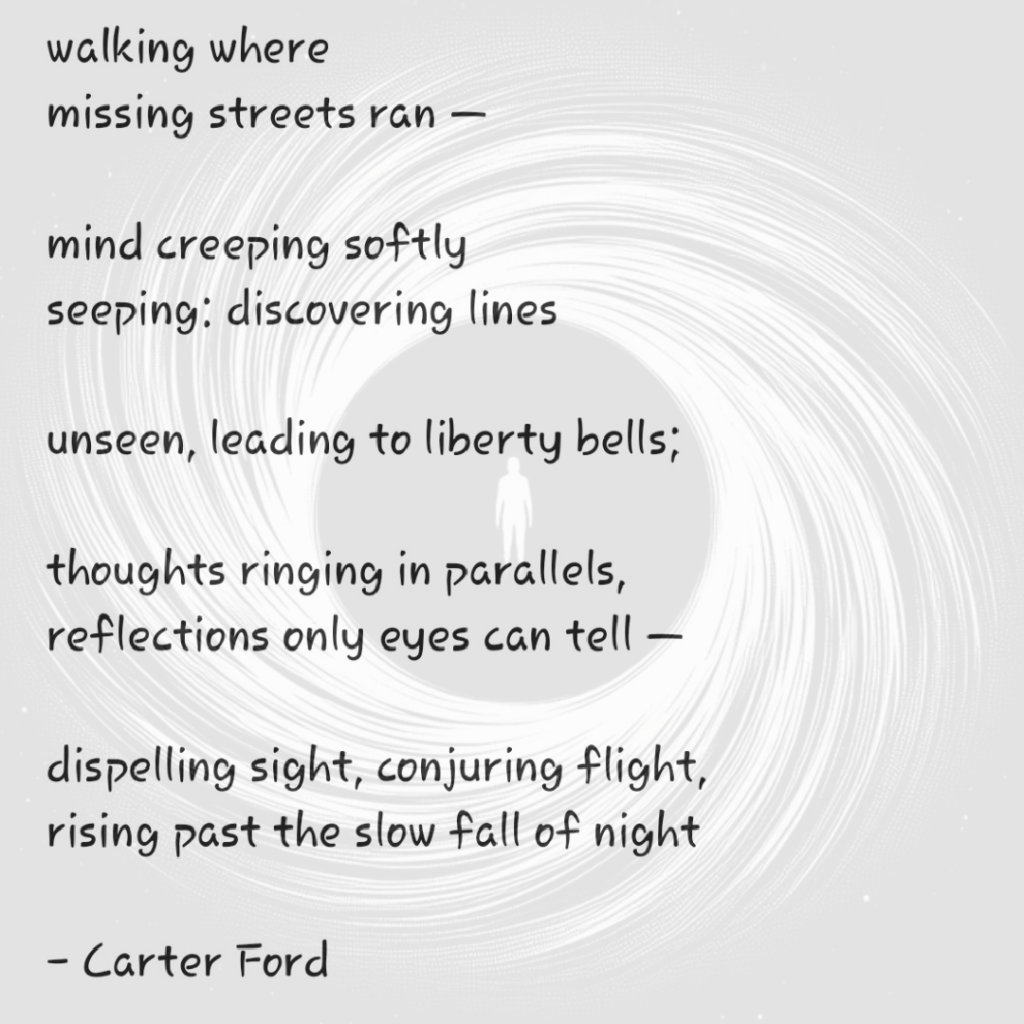 walking where
missing streets ran —
mind creeping softly
seeping: discovering lines
unseen, leading to liberty bells;
thoughts ringing in parallels,
reflections only eyes can tell —
dispelling sight, conjuring flight,
rising past the slow fall of night
- Carter Ford